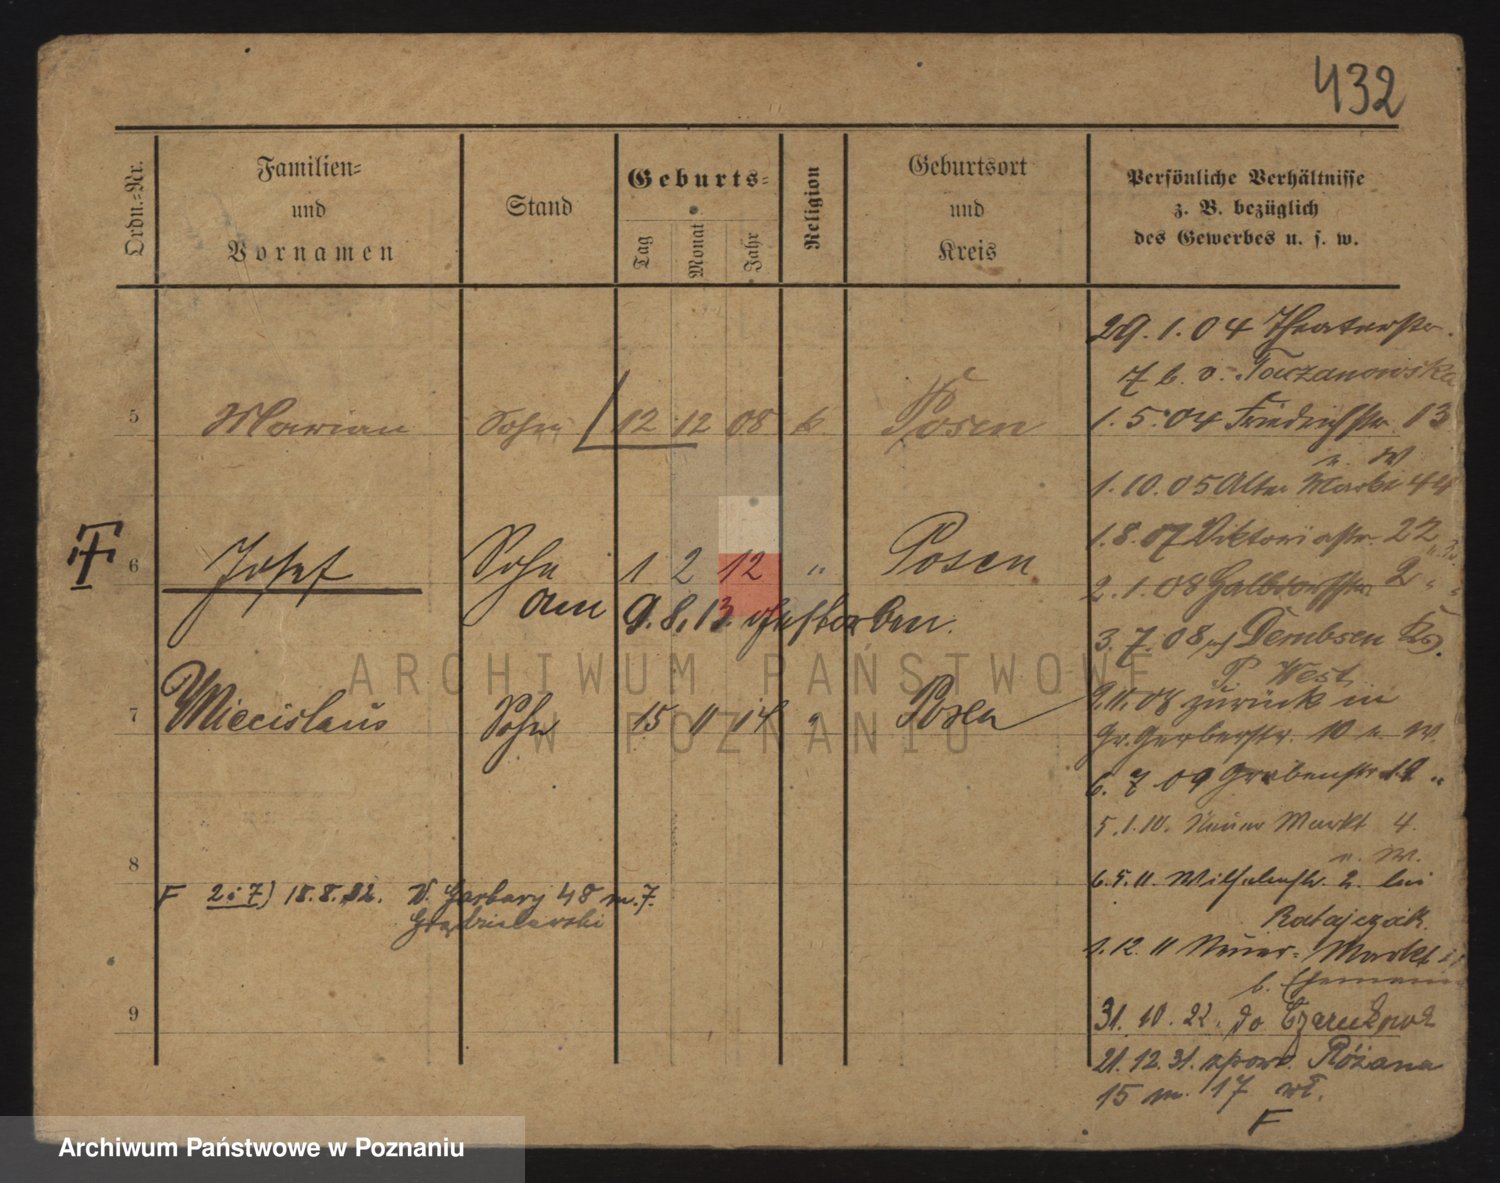 432
Ordn.-Nr.
Familien-
und
Vornamen
Stand
Geburts-
Tag
Monat
Jahr
Religion
Geburtsort
und
Kreis
Persönliche Verhältnisse
z. B. bezüglich
des Gewerbes u. s. w.
5 Marian Sohn 12 12 08 k. Posen
6 Josef Sohn 1 2 12 " Posen
am 9.8.13. gestorben.
7 Miecislaus Sohn 15 11 14 " Posen
8
F 2 i 7) 18.8.22. W. Garbary 48 m. 7.
9
29.1.04 Theaterstr.
7 b. v. Taczanowska
1.5.04 Friedrichstr. 13
u. W
1.10.05 Alter Markt 44
1.8.07 Viktoriastr. 22
2.1.08 Halbdorfstr. 2
3.7.08 Dembsen
P. West
9.11.08 zurück in
Gr. Gerberstr. 10 u. W.
6.7.09 Grabenstr. 19 "
5.1.10. Neuer Markt 4.
u. W.
6.5.11. Wilhelmstr. 2. bei
Ratajczak.
1.12.11 Neuer-Markt
b. Ehemann
31.10.22. do
21.12.31. Różana
15 m. 17 wł.
F
ARCHIWUM PAŃSTWOWE
W POZNANIU
Archiwum Państwowe w Poznaniu